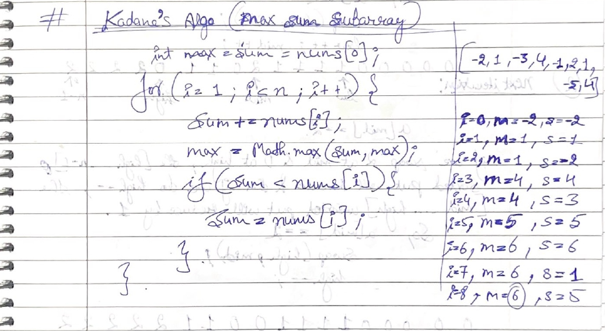 # Kadane's Algo (max sum subarray)
int max = sum = nums[0];
for (i=1; i<n; i++) {
sum += nums[i];
max = Math.max(sum, max);
if (sum < nums[i]) {
sum = nums[i];
}
}
[-2,1,-3,4,-1,2,1,
-5,4]
i=0, m=-2, s=-2
i=1, m=1, s=1
i=2, m=1, s=-2
i=3, m=4, s=4
i=4, m=4, s=3
i=5, m=5, s=5
i=6, m=6, s=6
i=7, m=6, s=1
i=8, m=6, s=5